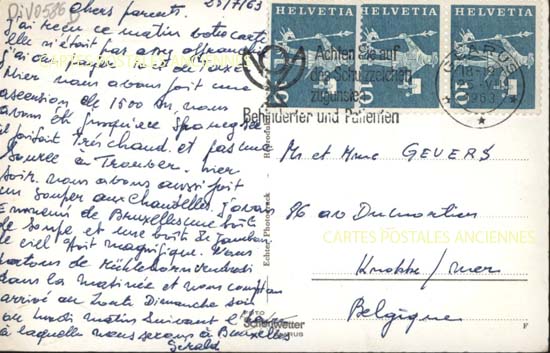 DiV0586
25/7/63
Chers parents.
J'ai reçu ce matin votre carte
elle n'était pas assez affranchie
j'ai dû
Hier nous avons fait une
ascension de 1500 m. nous
avons été jusqu'à
il faisait très chaud et pas une
source à trouver. Hier
soir nous avons aussi fait
un souper aux chandelles. J'avais
emmené de Bruxelles une boîte
de soupe et une boîte de jambon
le ciel était magnifique. Nous
partons de Mühlehorn vendredi
dans la matinée et nous comptons
arriver au Zoute Dimanche soir
ou lundi matin suivant l'heure
à laquelle nous serons à Bruxelles
Gérald
HELVETIA HELVETIA HELVETIA
10
Achten Sie auf
das Schutzzeichen
zugunsten
Behinderter und Patienten
GLARUS
18-19
1963
Mr et Mme GEVERS
86 av Dumortier
Knokke/mer
Belgique
CARTES POSTALES ANCIENNES
CARTES POSTALES ANCIENNES
Echte Photo
FOTO
Schönwetter
GLARUS
F